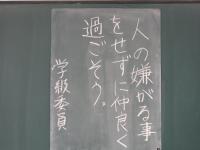 人の嫌がる事
をせずに仲良く
過ごそう。
学級委員